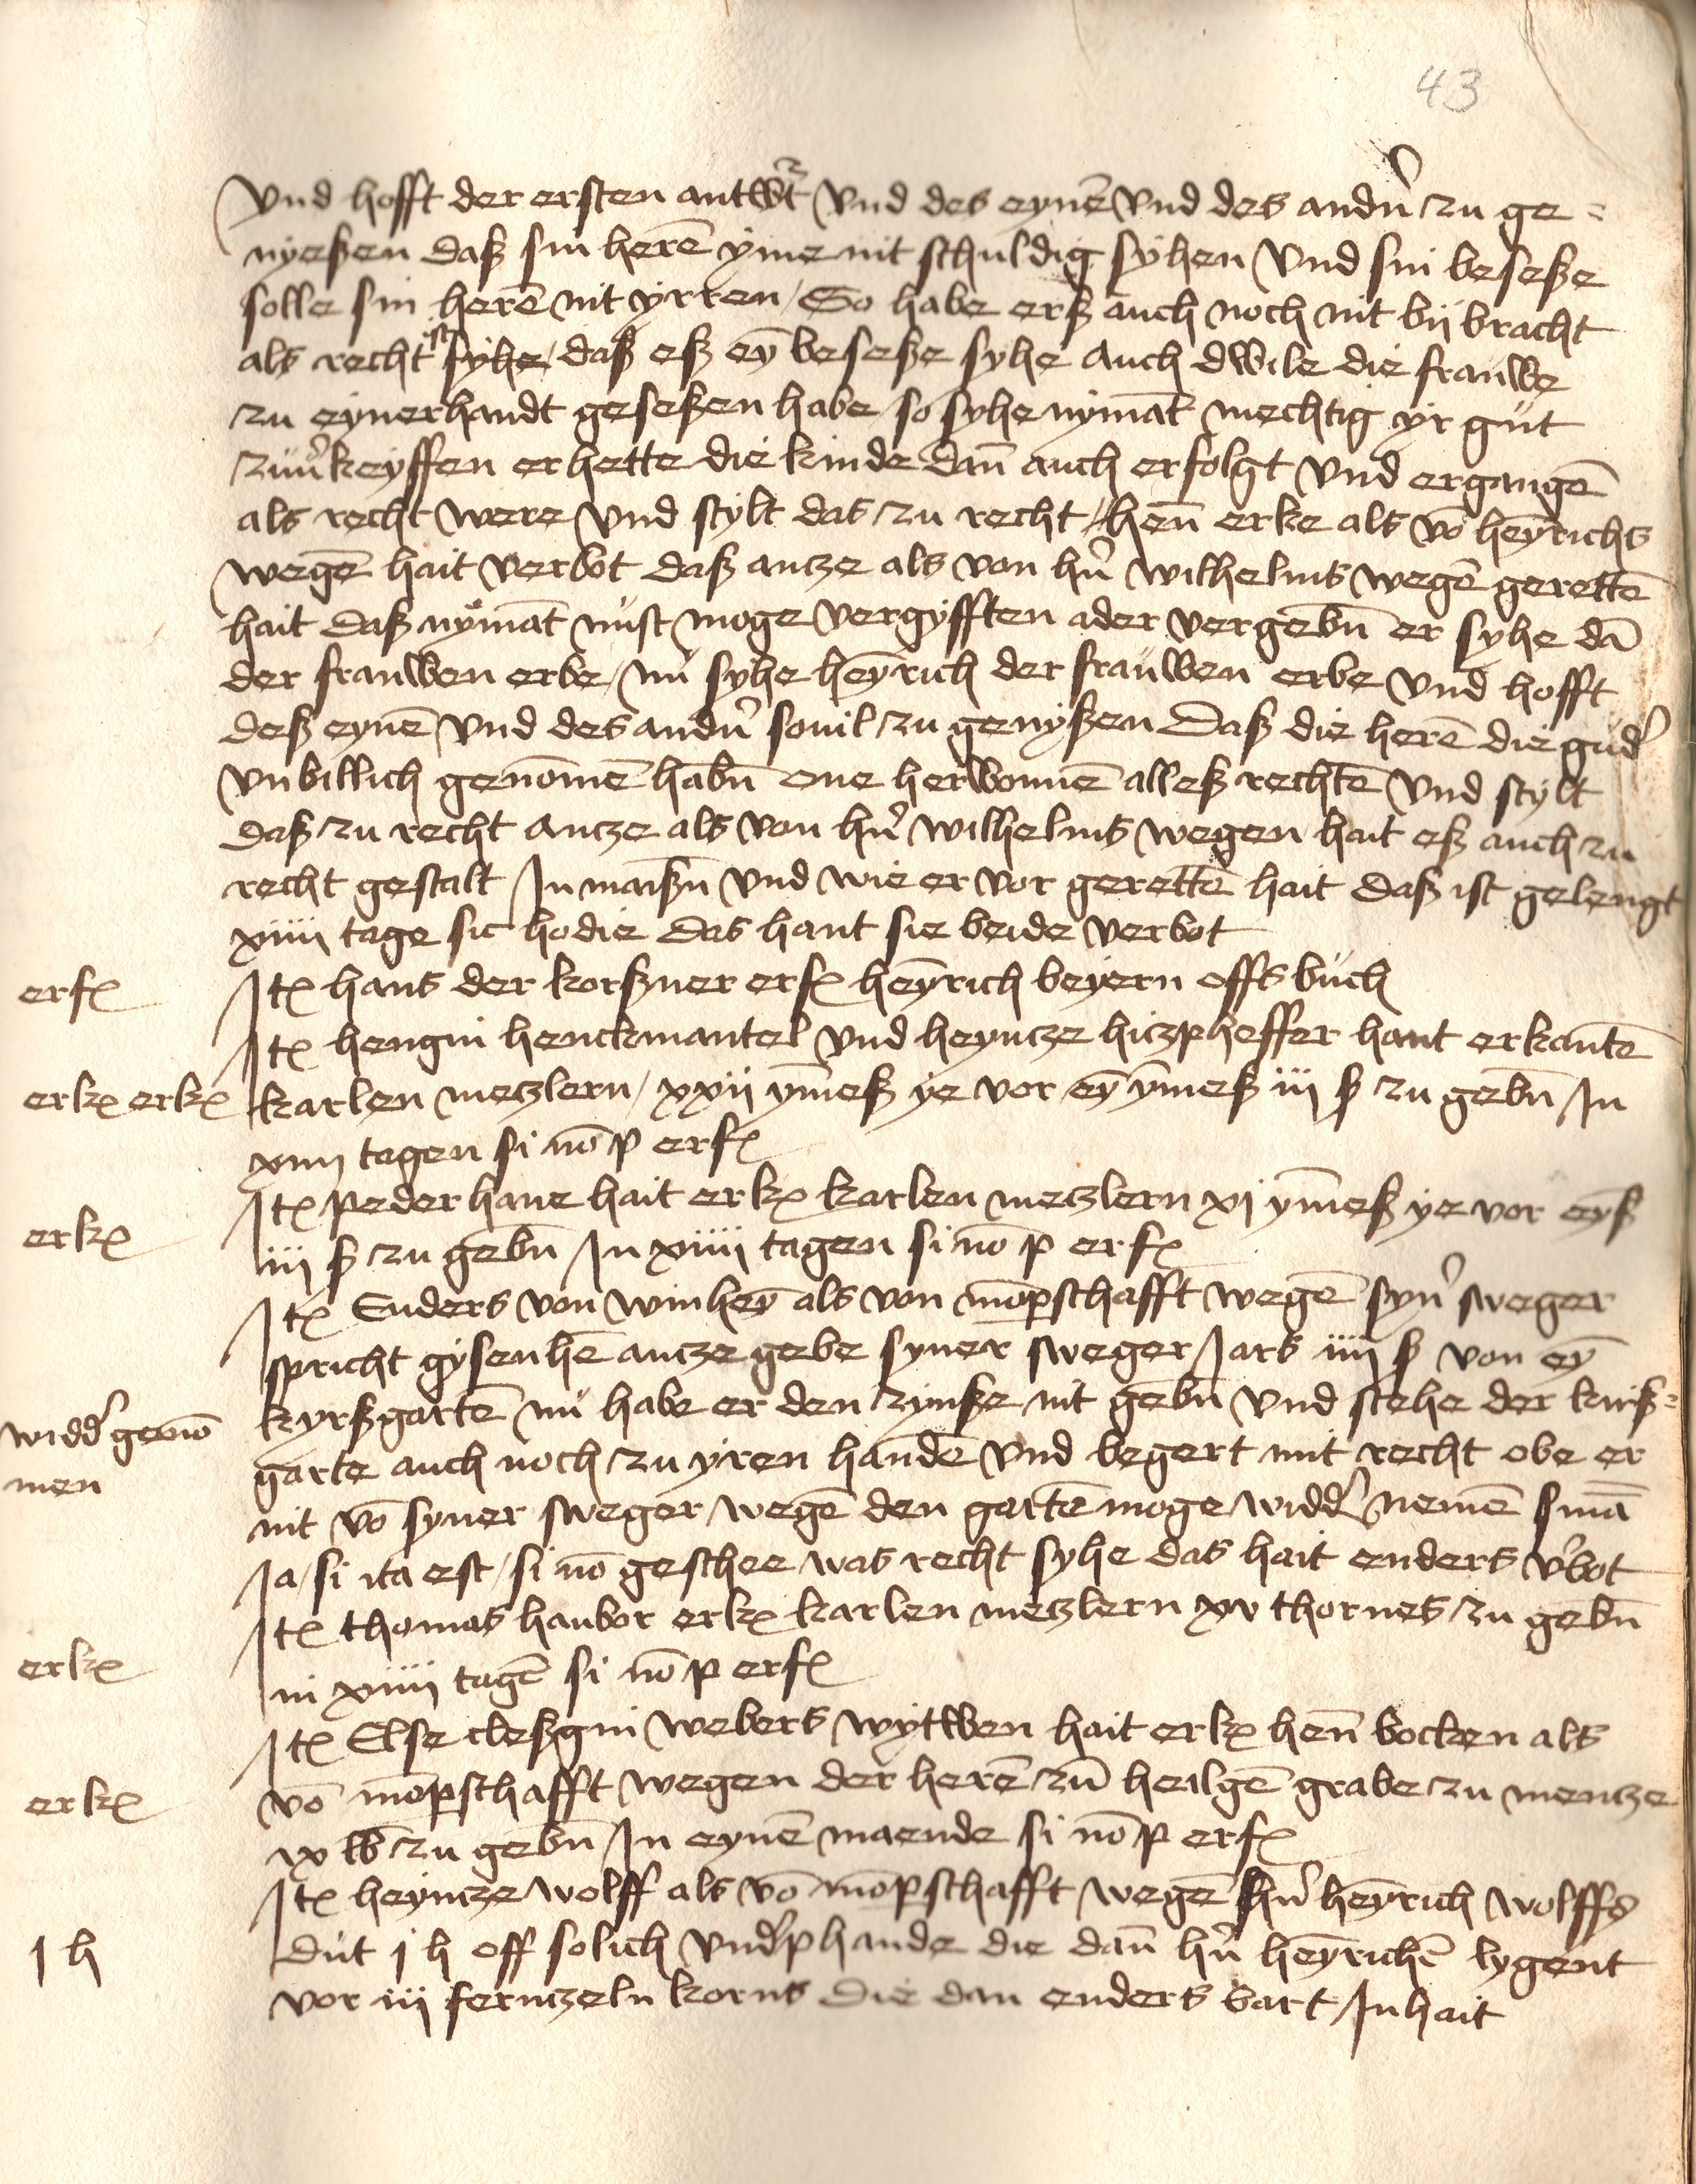 43
Vnd hofft der ersten antwt Vnd des eynē Vnd des andn̄ zu ge=
nyeßen daß sin herē yme nit schuldig syhen Vnd sin beseße
solle sin herē nit yrren / So habe erß auch noch nit bij bracht
als recht ist syhe / daß eß ey̅ beseße syhe Auch dwile die frauwe
zu eynerhandt geseßen habe / so syhe nymāt mechtig yr gut
zuu̓keyffen er hette die kinde dan̄ auch erfolgt Vnd ergangē
als recht were Vnd stylt das zu recht / Hen̄ erke als vō heyrichs
wegē hait verbot daß antze als von hn̓ wilhelms wegē gerettē
hait daß nymāt nust moge vergyfften ader vergebn̄ er syhe dā
der frauwen erbe / nu syhe heyrich der frauwen erbe Vnd hofft
deß eynē Vnd des andn̓ souil zu genyßen Daß die herē die gud̓
Vnbillich genōmē habn̄ one herwonnē alleß rechtē Vnd stylt
daß zu recht Antze als von hn̓ wilhelms wegen hait eß auch zu
recht gestalt In maißn̄ Vnd wie er vor gerettē hait Daß ist gelengt
xiiii tage sic hodie das hant sie beide verbot
erf
Itꝫ hans der korßner erf heyrich beyern offs buch
Itꝫ hengin henckmantel Vnd heyntze hitzpheffer hant erkantē
erk erk
karlen metzlern / xxij ym̄eß ye vor ey̅ ym̄eß iij ß zu gebn̄ In
xiiij tagen si nō p erf
erk
Itꝫ peder hane hait erk karlen metzlern xj ym̄eß ye vor eyß
iij ß zu gebn̄ In xiiii tagen si nō p erf
Itꝫ Enders von winhey̅ als von mōpschafft wegē syn̓ sweger
spricht gysenhē antze gebe syner sweger Jars iiij ß von ey̅
widd̓ genō
men
kyrßgartē nu habe er den zynße nit gebn̄ Vnd stehe der kirß=
garte auch noch zu yren handē Vnd begert mit recht obe er
nit vō syner sweger wegē den gartē moge widd̓ nemē smā
Ja / si ita est / si nō geschee was recht syhe das hait enders v̓bot
Itꝫ thomas haubor erk karlen metzlern xv thornes zu gebn̄
erk
in xiiii tagē si nō p erf
Itꝫ Else cleßgin webers wytwen hait erk hen̄ bocken als
erk
vō mōpschafft wegen der herē zū heilgē grabe zu mentze
ix lb zu gebn̄ In eynē maende si nō p erf
Itꝫ heyntze wolff als vō mōpschafft wegē hn̓ heyrich wolffs
j h
dut j h off solich vnd̓phande die dan̄ hn̓ heyrichē lygent
vor iij ferntzeln korns die dan enders bart Inhait